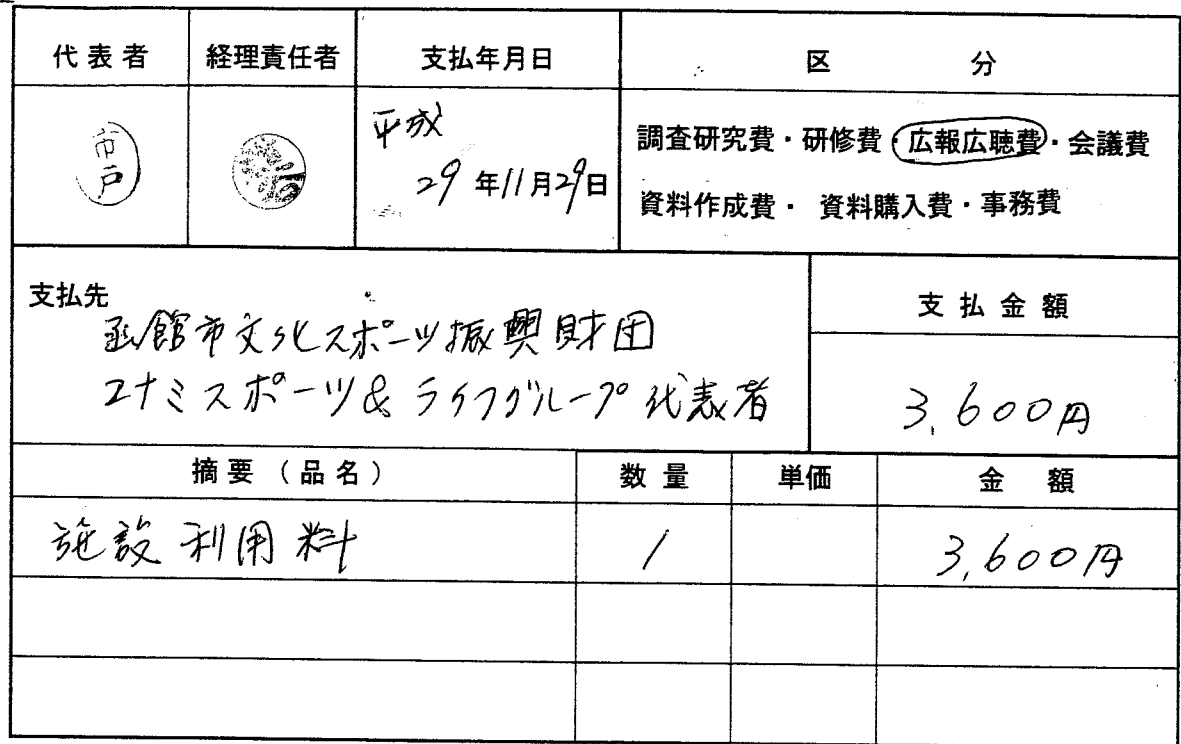 代表者 経理責任者 支払年月日 区分
市戸
平成
29年11月29日
調査研究費・研修費・広報広聴費・会議費
資料作成費・資料購入費・事務費
支払先
函館市文化スポーツ振興財団
コナミスポーツ&ライフグループ代表者
支払金額
3,600円
摘要(品名) 数量 単価 金額
施設利用料 1 3,600円